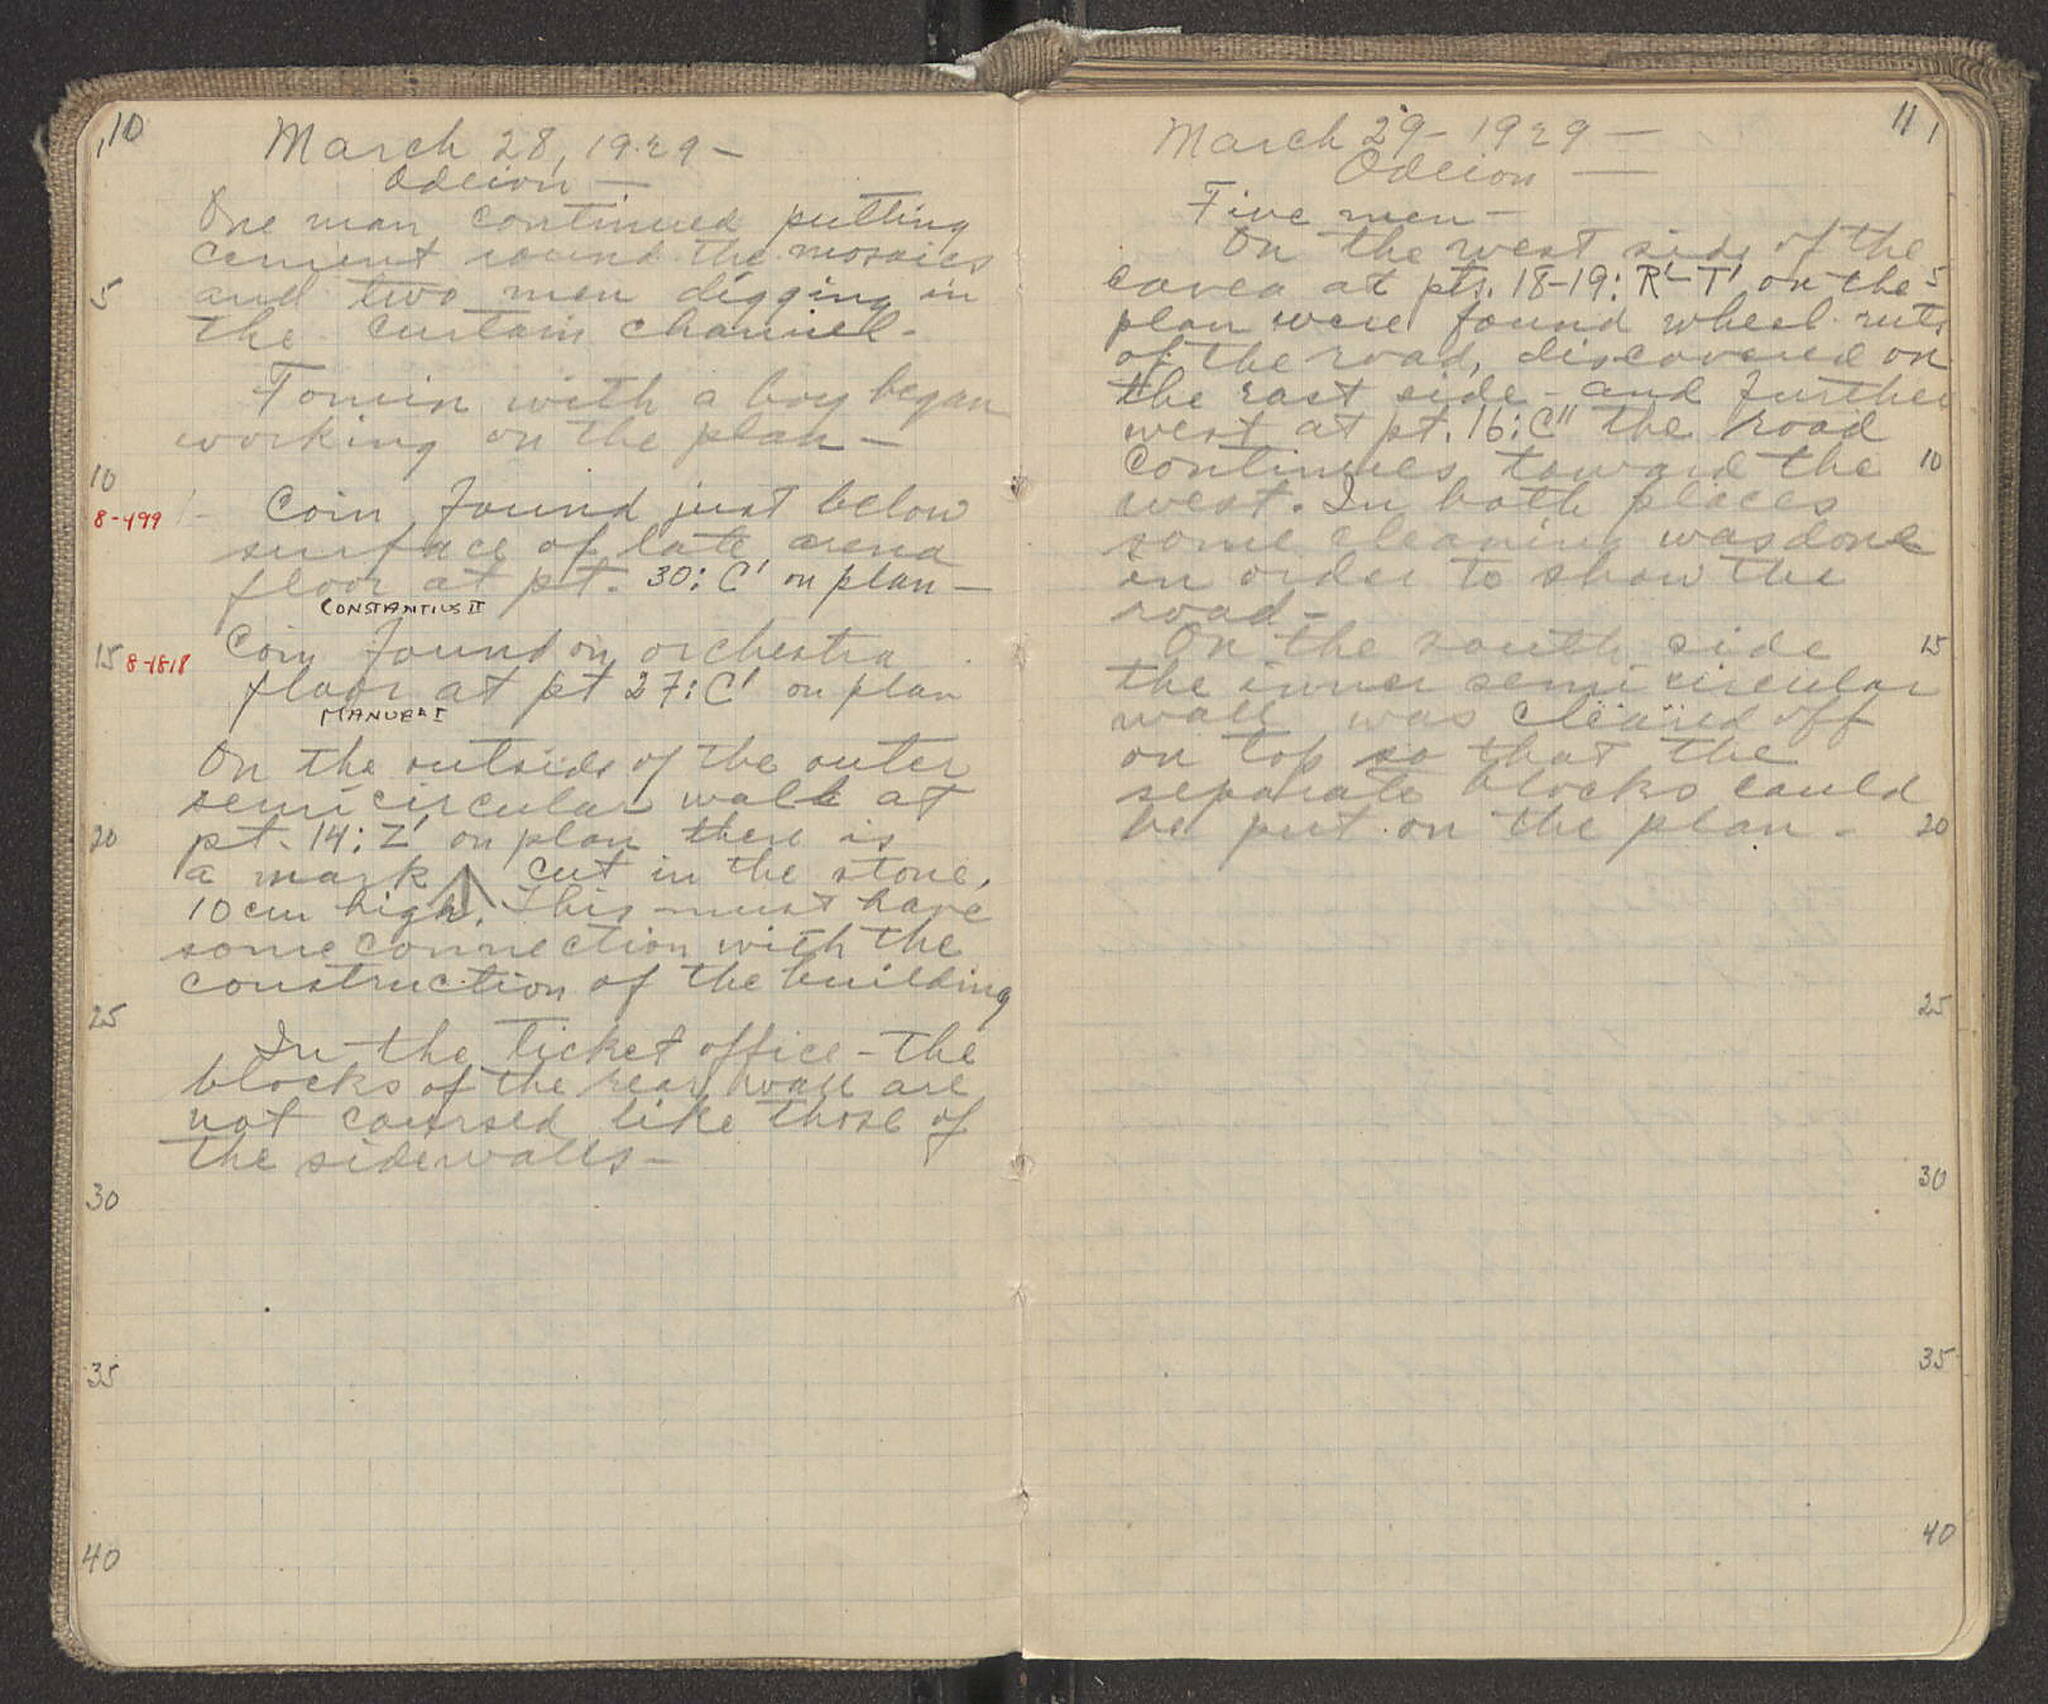 10
March 28, 1929 —
Odeion —
One man continued putting
cement round the mosaics
5 and two men digging in
the curtain channel.
Tomin with a boy began
working on the plan —
10
8-499 Coin found just below
surface of late arena
floor at pt. 30: C' on plan —
CONSTANTIUS II
15 8-1818 Coin found on orchestra
floor at pt 27: C' on plan
MANUEL I
On the outside of the outer
semicircular wall at
20 pt. 14: Z' on plan there is
a mark Λ cut in the stone,
10 cm high. This must have
some connection with the
construction of the building
25
In the ticket office - the
blocks of the rear wall are
not coursed like those of
the sidewalls —
30
35
40
11
March 29 - 1929 —
Odeion —
Five men —
On the west side of the
cavea at pts. 18-19: R'-T' on the 5
plan were found wheel ruts
of the road, discovered on
the east side - and further
west at pt. 16: C" the road
continues toward the 10
west. In both places
some cleaning was done
in order to show the
road —
On the south side 15
the inner semicircular
wall was cleared off
on top so that the
separate blocks could
be put on the plan - 20
25
30
35
40